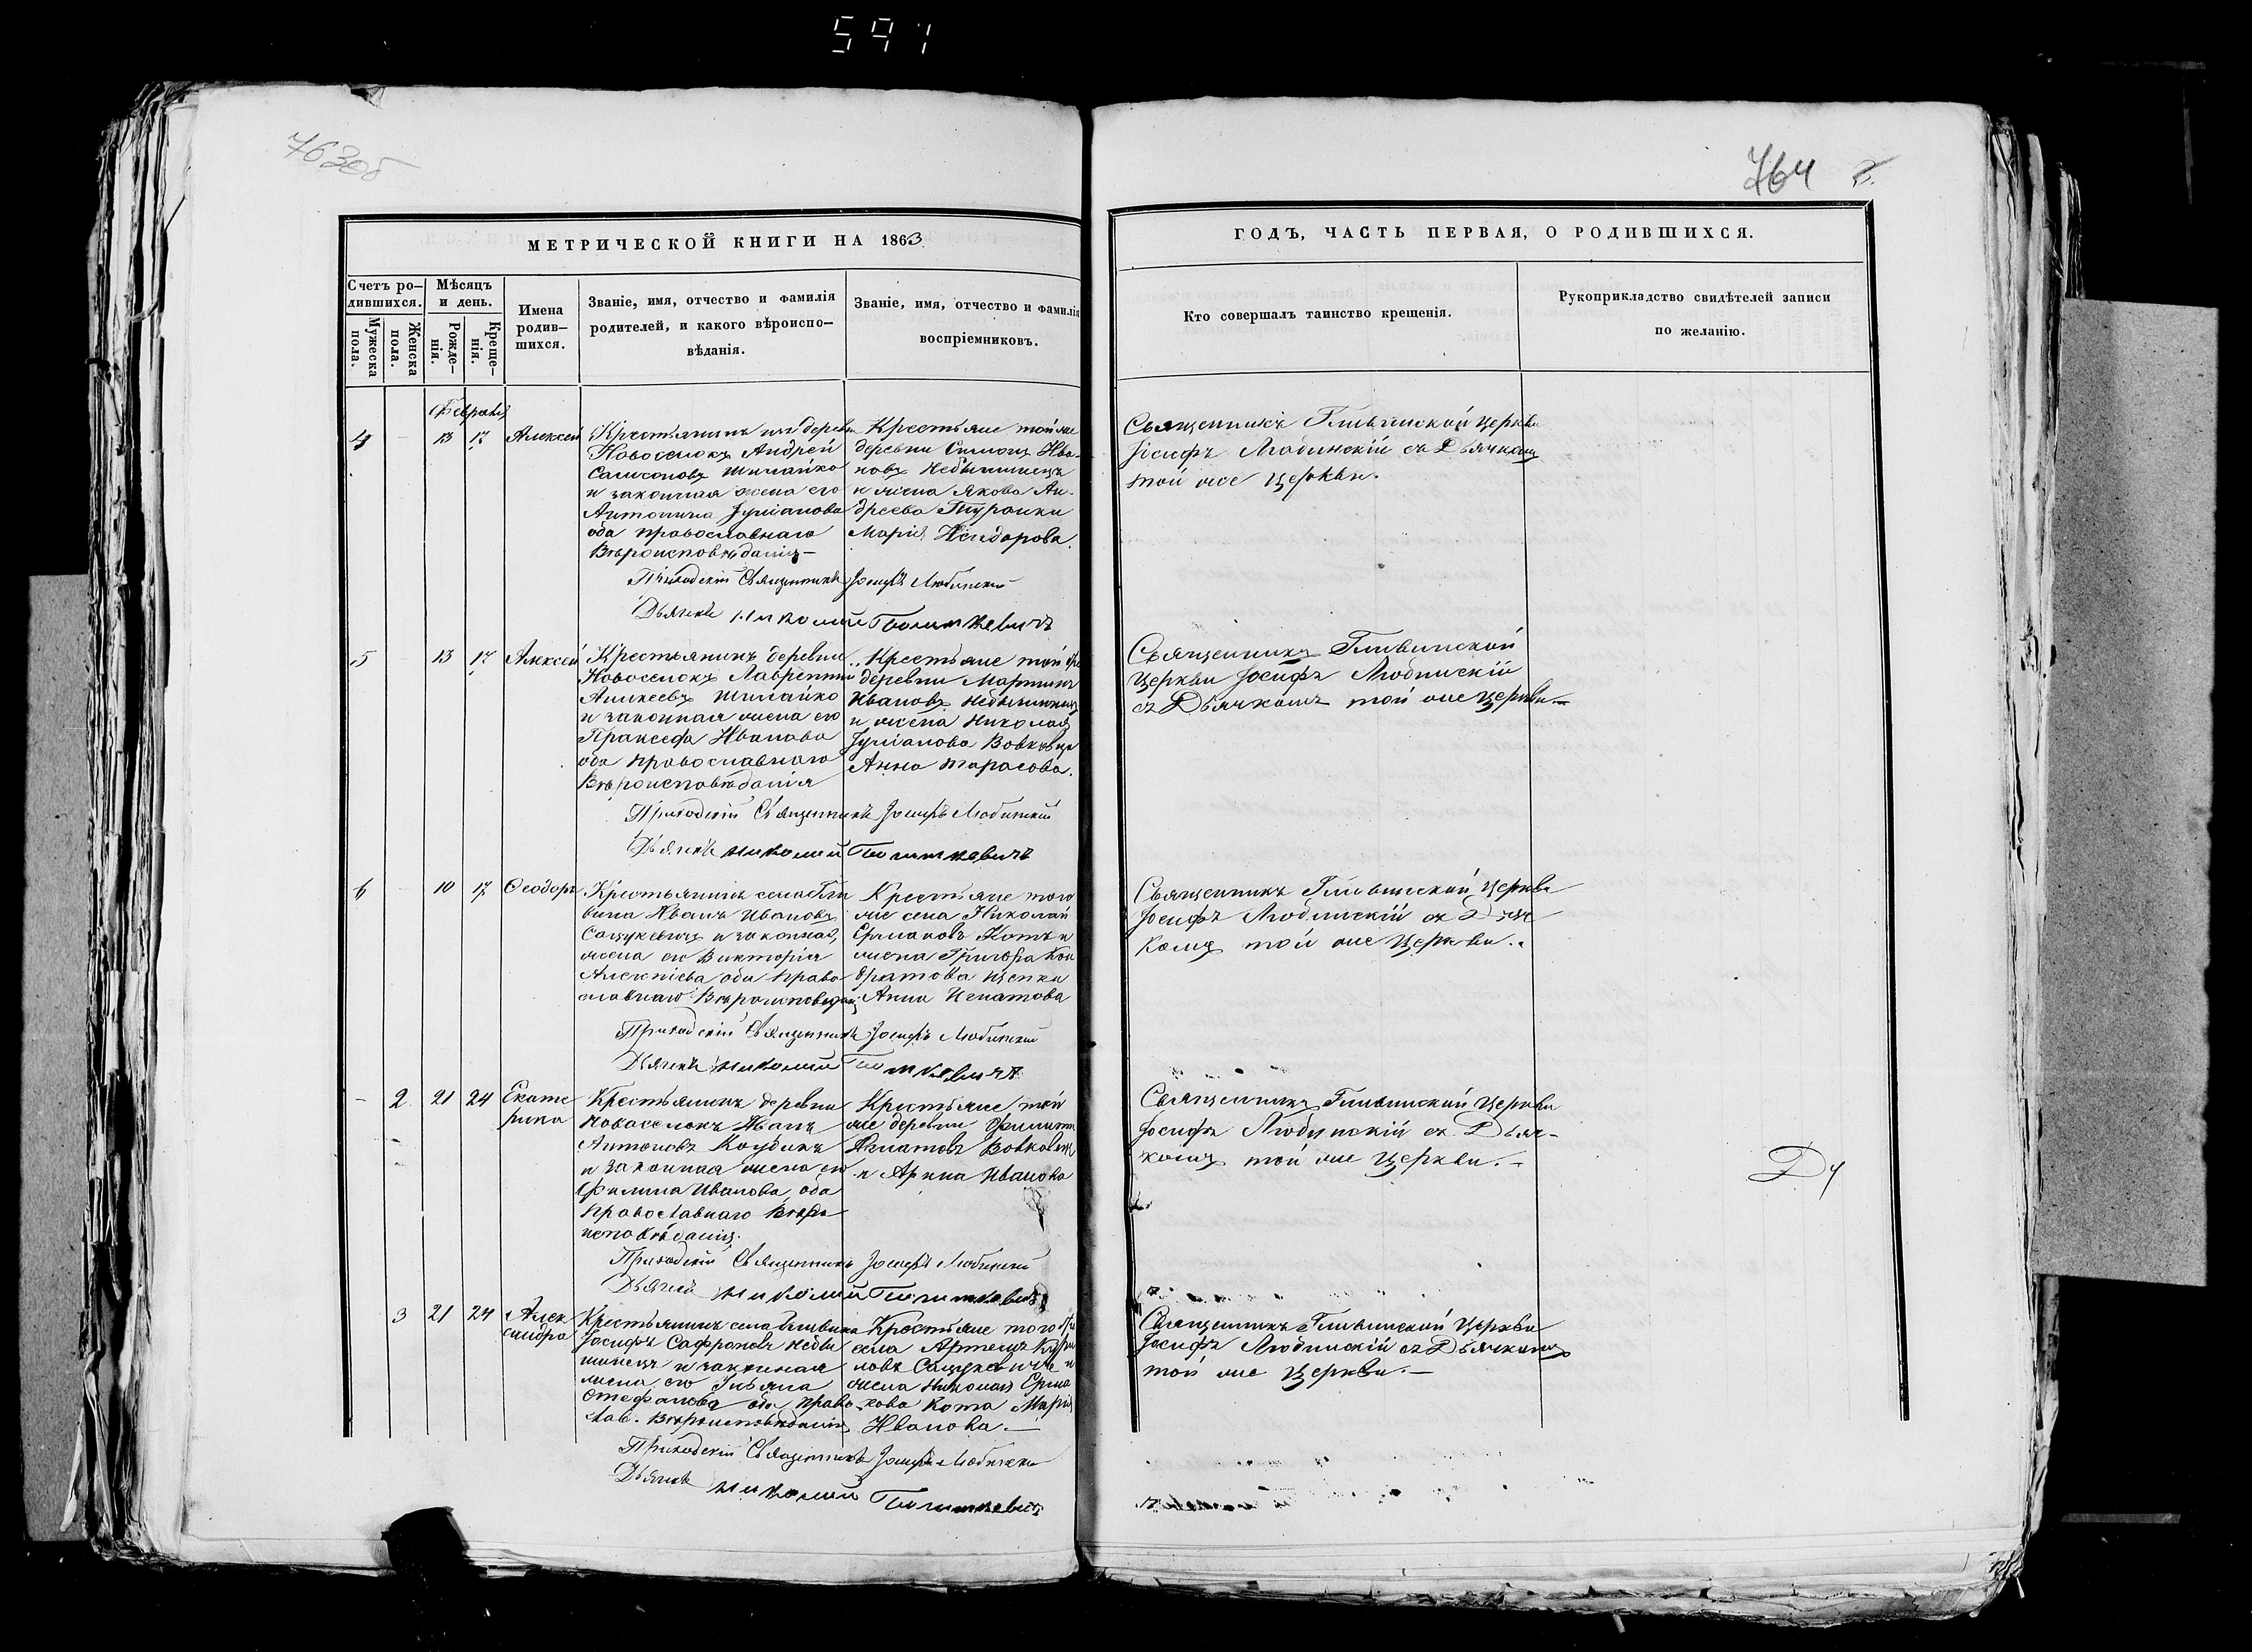 591
763об
764
МЕТРИЧЕСКОЙ КНИГИ НА 1863
ГОДЪ, ЧАСТЬ ПЕРВАЯ, О РОДИВШИХСЯ.
Счетъ ро-
дившихся.
Мужеска
пола.
Женска
пола.
Мѣсяцъ
и день.
Рожде-
нія.
Креще-
нія.
Имена
родив-
шихся.
Званіе, имя, отчество и фамилія
родителей, и какого вѣроиспо-
вѣданія.
Званіе, имя, отчество и фамилія
воспріемниковъ.
Кто совершалъ таинство крещенія.
Рукоприкладство свидѣтелей записи
по желанію.
Февраля
4 - 13 17 Алексей
Крестьянинъ изъ деревни
Новоселокъ Андрей
Самсоновъ Шилайко
и законная жена его
Антонина Іуліанова
оба православнаго
Вѣроисповѣданія-
Крестьяне той же
деревни Симонъ Ива-
новъ Небышинецъ
и жена Якова Ан-
дреева Туронки
Марія Исидорова.
Священникъ Гливинской церкви
Іосифъ Любинскій съ Дьячкомъ
той же церкви.
Приходскій Священникъ Іосифъ Любинскій
Дьячекъ Николай
5 - 13 17 Алексей
Крестьянинъ деревни
Новоселокъ Лаврентій
Алексеевъ Шилайко
и законная жена его
Пракседа Иванова
оба православнаго
Вѣроисповѣданія
Крестьяне той же
деревни Мартинъ
Ивановъ Небышинецъ
и жена Николая
Іуліанова Вовковца
Анна Тарасова.
Священникъ Гливинской
церкви Іосифъ Любинскій
съ Дьячкомъ той же церкви-
Приходскій Священникъ Іосифъ Любинскій
Дьячекъ Николай
6 - 10 17 Феодоръ
Крестьянинъ села Гли
вина Иванъ Ивановъ
Сацукевичъ и законная
жена его Викторія
Алексіева оба право
славнаго Вѣроисповедан
Крестьяне того
же села Николай
Ермаковъ Котъ и
жена Григора Кон
дратова Щепки
Анна Игнатова
Священникъ Гливинской церкви
Іосифъ Любинскій съ Дьяч
комъ той же церкви.
Приходскій Священникъ Іосифъ Любинскій
Дьячекъ Николай
- 2 21 24 Екате
рина
Крестьянинъ деревни
Новоселокъ Иванъ
Антоновъ
и законная жена его
Фелина Иванова, оба
православнаго Вѣро
исповѣданія.
Крестьяне той
же деревни Филипъ
Игнатовъ Вовковецъ
и Арина Иванова
Священникъ Гливинской церкви
Іосифъ Любинскій съ Дьяч-
комъ той же церкви.-
Приходскій Священникъ Іосифъ Любинскій
Дьячекъ Николай
3 21 24 Алек
сандра
Крестьянинъ села Гливина
Іосифъ Сафроновъ Небы
шинецъ и законная
жена его Ульяна
Стефанова оба право
слав. Вѣроисповѣданія
Крестьяне того же
села Артемъ
ловъ Сацукевичъ и
жена Николая Ерма
кова Кота Марія
Иванова.-
Священникъ Гливинской церкви
Іосифъ Любинскій съ Дьячкомъ
той же церкви.-
Приходскій Священникъ Іосифъ Любинскій
Дьячекъ Николай